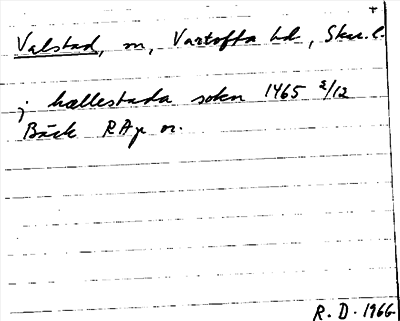 +
Valstad, sn, Vartofta hd, Skar. l.
j hællestada sokn 1465 2/12
Bäck RAp or.
R. D. 1966